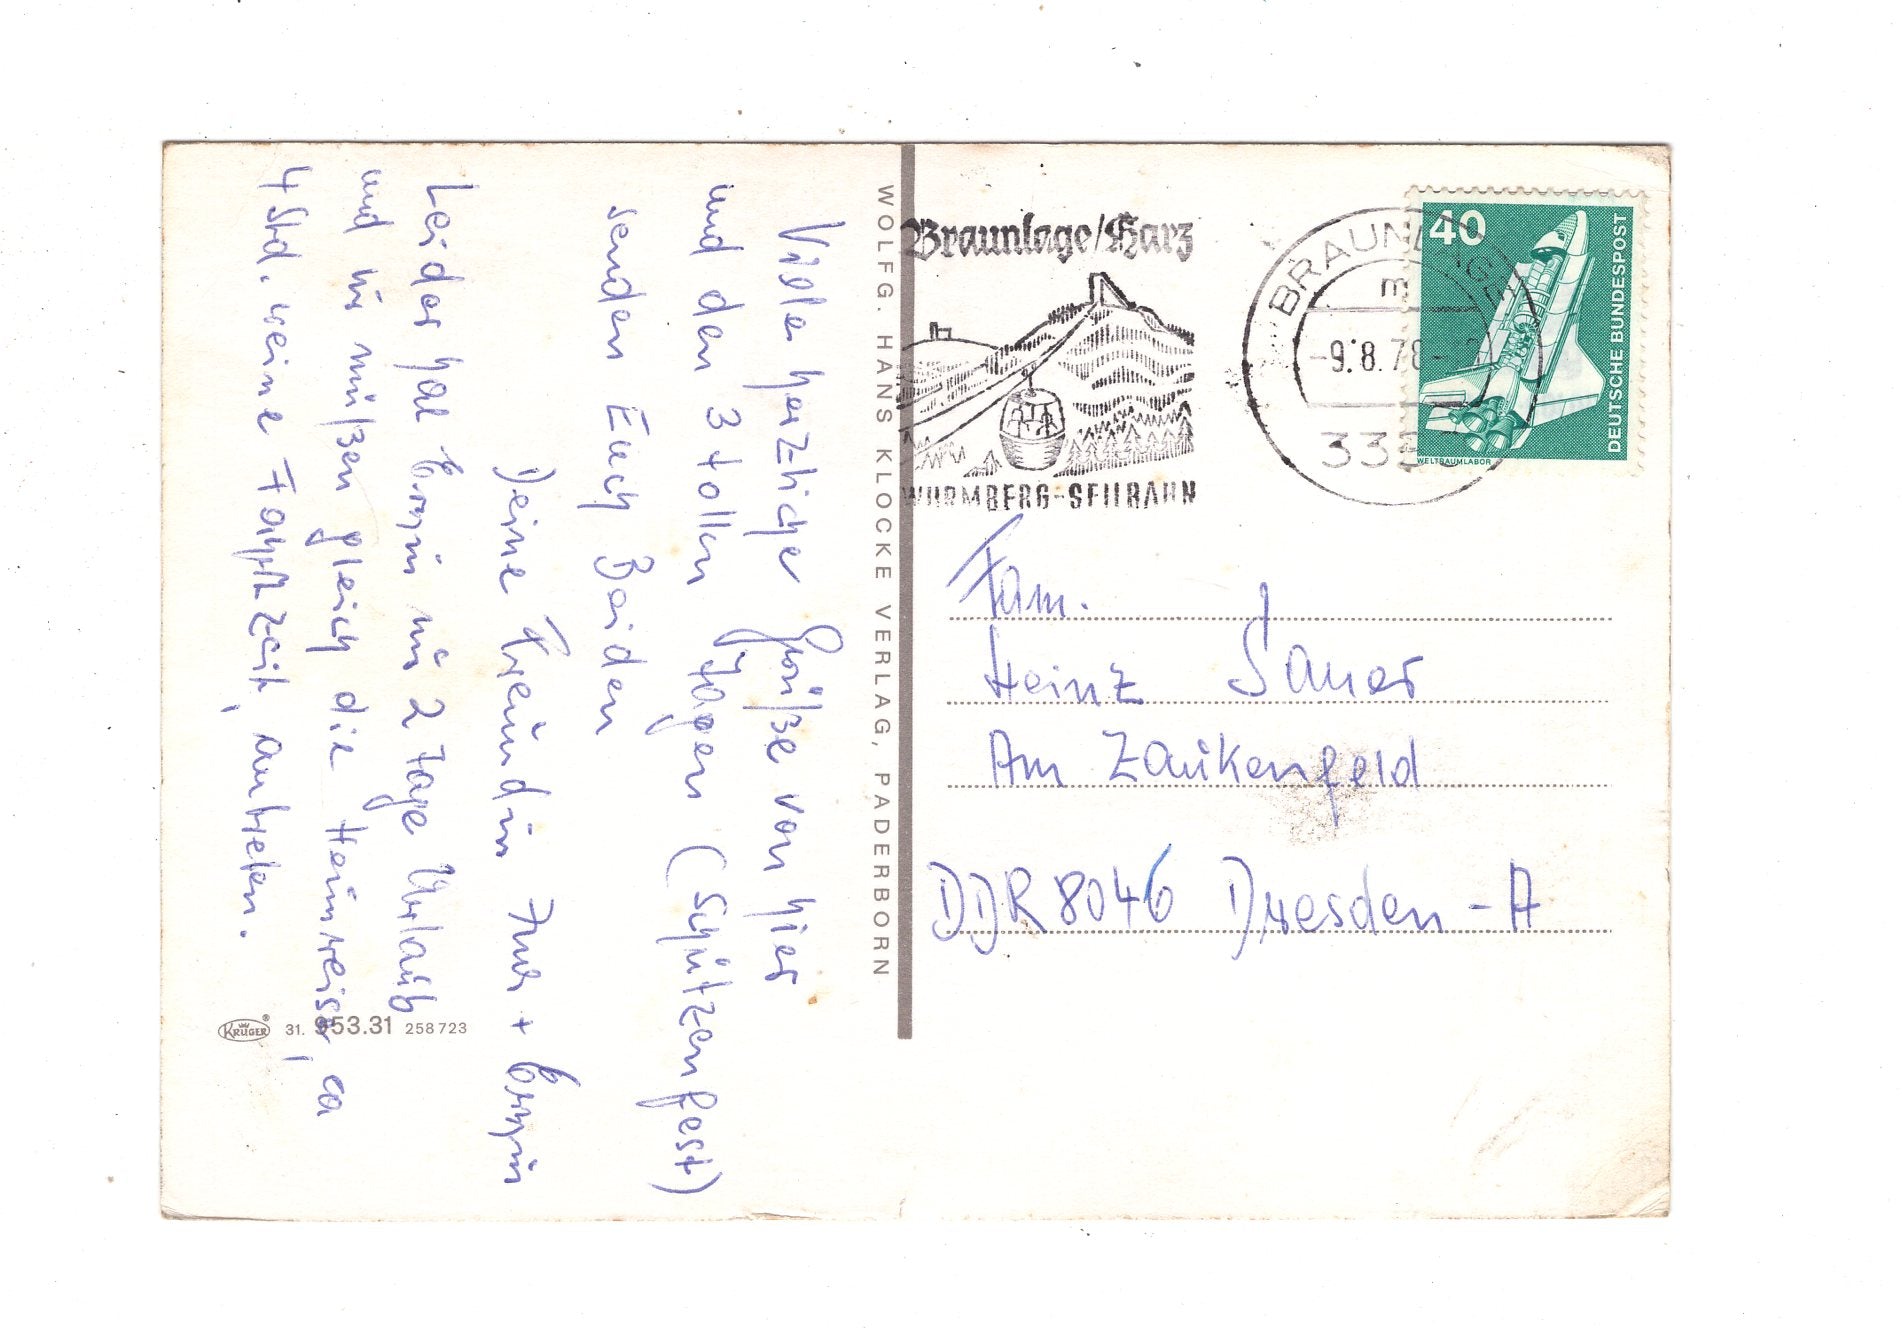 Viele herzliche Grüße von hier
und den 3 tollen Tagen (Schützenfest)
senden Euch Beiden
Deine Freundin +
Leider hat nur 2 Tage Urlaub
und wir müßen gleich die Heimreise, ca
4 Std. reine Fahrtzeit, antreten.
KRÜGER® 31. 953.31 258 723
WOLFG. HANS KLOCKE VERLAG, PADERBORN
Braunlage/Harz
WURMBERG-SEILBAHN
BRAUNLAGE
m
-9.8.78-
40
DEUTSCHE BUNDESPOST
WELTRAUMLABOR
Fam.
Heinz Sauer
Am Zaukenfeld
DDR 8046 Dresden-A